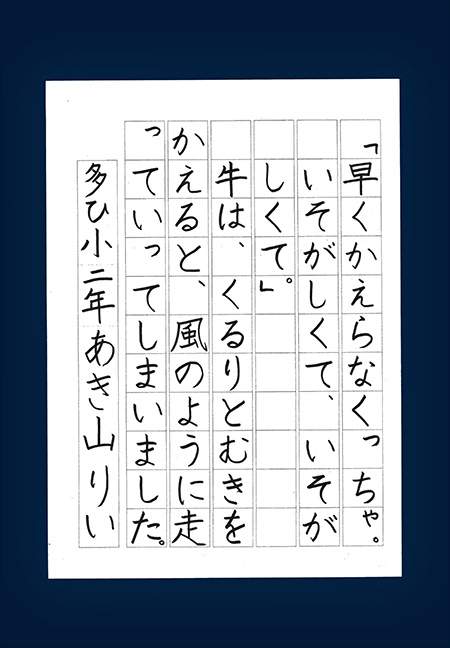 「早くかえらなくっちゃ。
いそがしくて、いそが
しくて。」
牛は、くるりとむきを
かえると、風のように走
っていってしまいました。
多ひ小二年あき山りい